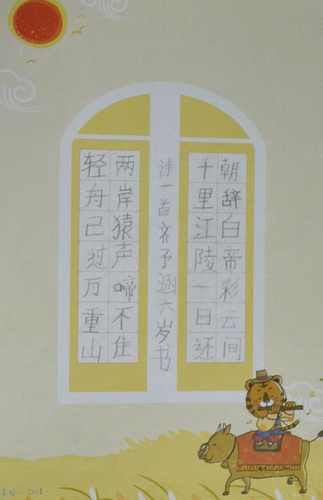 朝辞白帝彩云间
千里江陵一日还
诗一首齐予涵六岁书
两岸猿声啼不住
轻舟已过万重山